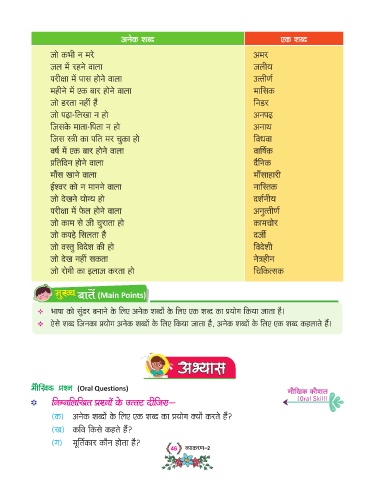 अनेक शब्द एक शब्द
जो कभी न मरे अमर
जल में रहने वाला जलीय
परीक्षा में पास होने वाला उत्तीर्ण
महीने में एक बार होने वाला मासिक
जो डरता नहीं है निडर
जो पढ़ा-लिखा न हो अनपढ़
जिसके माता-पिता न हो अनाथ
जिस स्त्री का पति मर चुका हो विधवा
वर्ष में एक बार होने वाला वार्षिक
प्रतिदिन होने वाला दैनिक
माँस खाने वाला माँसाहारी
ईश्वर को न मानने वाला नास्तिक
जो देखने योग्य हो दर्शनीय
परीक्षा में फेल होने वाला अनुत्तीर्ण
जो काम से जी चुराता हो कामचोर
जो कपड़े सिलता है दर्जी
जो वस्तु विदेश की हो विदेशी
जो देख नहीं सकता नेत्रहीन
जो रोगी का इलाज करता हो चिकित्सक
मुख्य बातें (Main Points)
भाषा को सुंदर बनाने के लिए अनेक शब्दों के लिए एक शब्द का प्रयोग किया जाता है।
ऐसे शब्द जिनका प्रयोग अनेक शब्दों के लिए किया जाता है, अनेक शब्दों के लिए एक शब्द कहलाते हैं।
अभ्यास
मौखिक प्रश्न (Oral Questions)
मौखिक कौशल
(Oral Skill)
निम्नलिखित प्रश्नों के उत्तर दीजिए–
(क) अनेक शब्दों के लिए एक शब्द का प्रयोग क्यों करते हैं?
(ख) कवि किसे कहते हैं?
(ग) मूर्तिकार कौन होता है?
46 व्याकरण–2